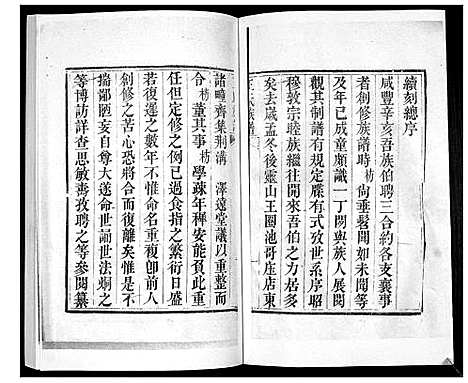 續刻總序
咸豐辛亥吾族伯聘三合約各支襄事
者創修族譜時枋尙垂髫聞如未聞等
及年已成童頗識一丁閒與族人展閱
觀其制譜有規定牒有式攷世系序昭
穆敦宗睦族繼往開來吾伯之功偉
矣去歲孟冬後靈山王圈池哥座店東
諸疃齊集荆溝 澤遠堂議以重整而
令枋董其事枋學疎年穉安能負此重
任但定修之例已過食指之繁衍日盛
若復遲之數年不惟命名重複卽前人
創修之苦心恐將合而復離矣惟是不
揣鄙陋亥自尊大遂與伯諭世法炯之
等博訪詳查思敏耇孜聘之等參閱纂